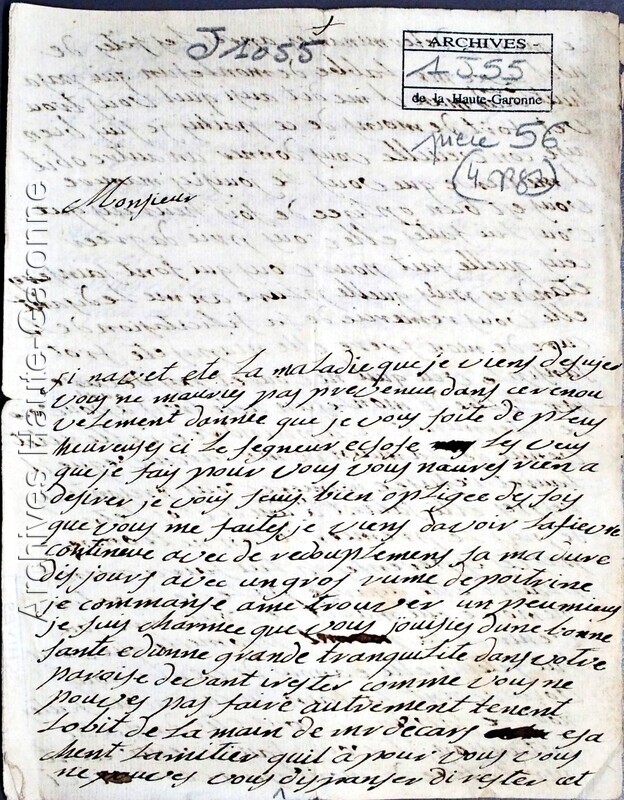 J 1055
ARCHIVES
1 J 55
de la Haute-Garonne
piece 56
(4 P 83)
Monsieur
si navet ete la maladie que je viens desujer
vous ne mauries pas prevenue dans ce renou
velement dannee que je vous soite de pleus
heureuses ci le segneur ecsose les veus
que je fais pour vous vous naures rien a
desirer je vous suis bien optigee des fois
que vous me faites je viens davoir la fievre
contineue avec de redouplemens sa ma dure
dis jours avec un gros rume de poitrine
je commanse a me trouver un peu mieus
je suis charmee que vous jouisies dune bonne
sante e dunne grande tranquilite dans votre
paroise devant i rester comme vous ne
pouves pas faire autrement tenent
lobit de la main de mr decars esa
chent lamitier quil a pour vous vous
ne vous dispanser di rester cet
Archives Haute-Garonne